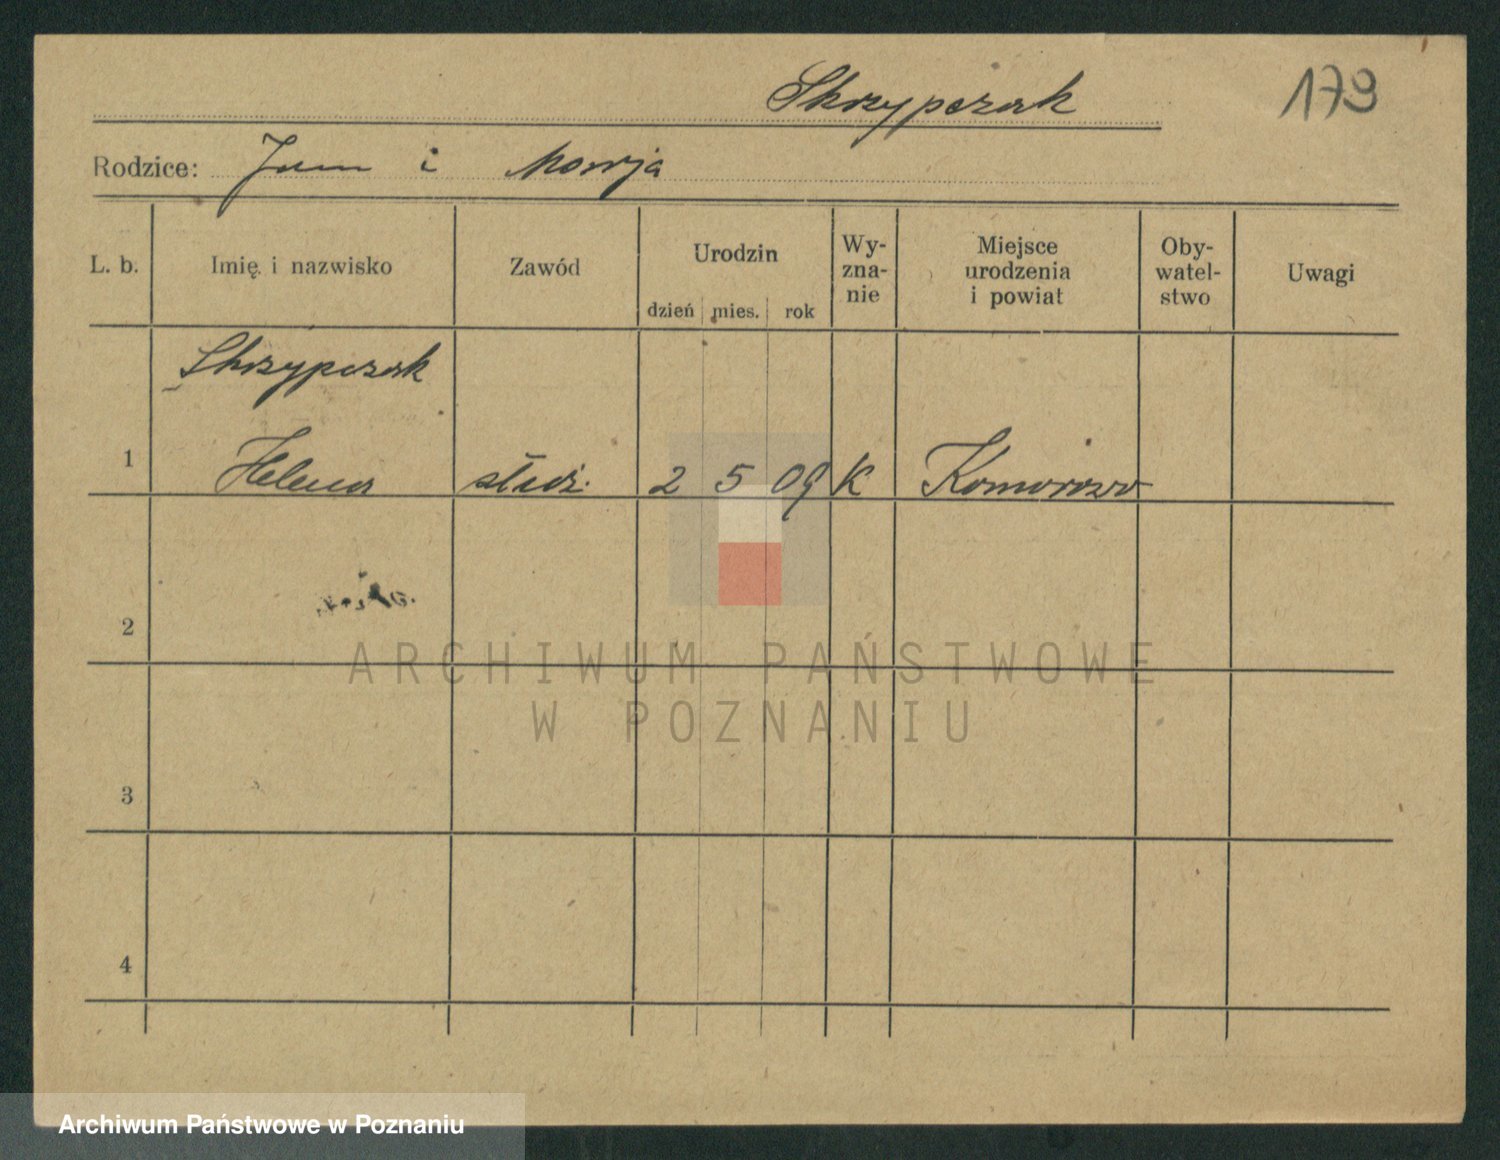 Skrzypczak
179
Rodzice: Jan i Marja
L. b.
Imię i nazwisko
Zawód
Urodzin
dzień mies. rok
Wy-
zna-
nie
Miejsce
urodzenia
i powiat
Oby-
watel-
stwo
Uwagi
Skrzypczak
1 Helena służ. 2 5 09 K Komorowo
2
3
4
ARCHIWUM PAŃSTWOWE
W POZNANIU
Archiwum Państwowe w Poznaniu